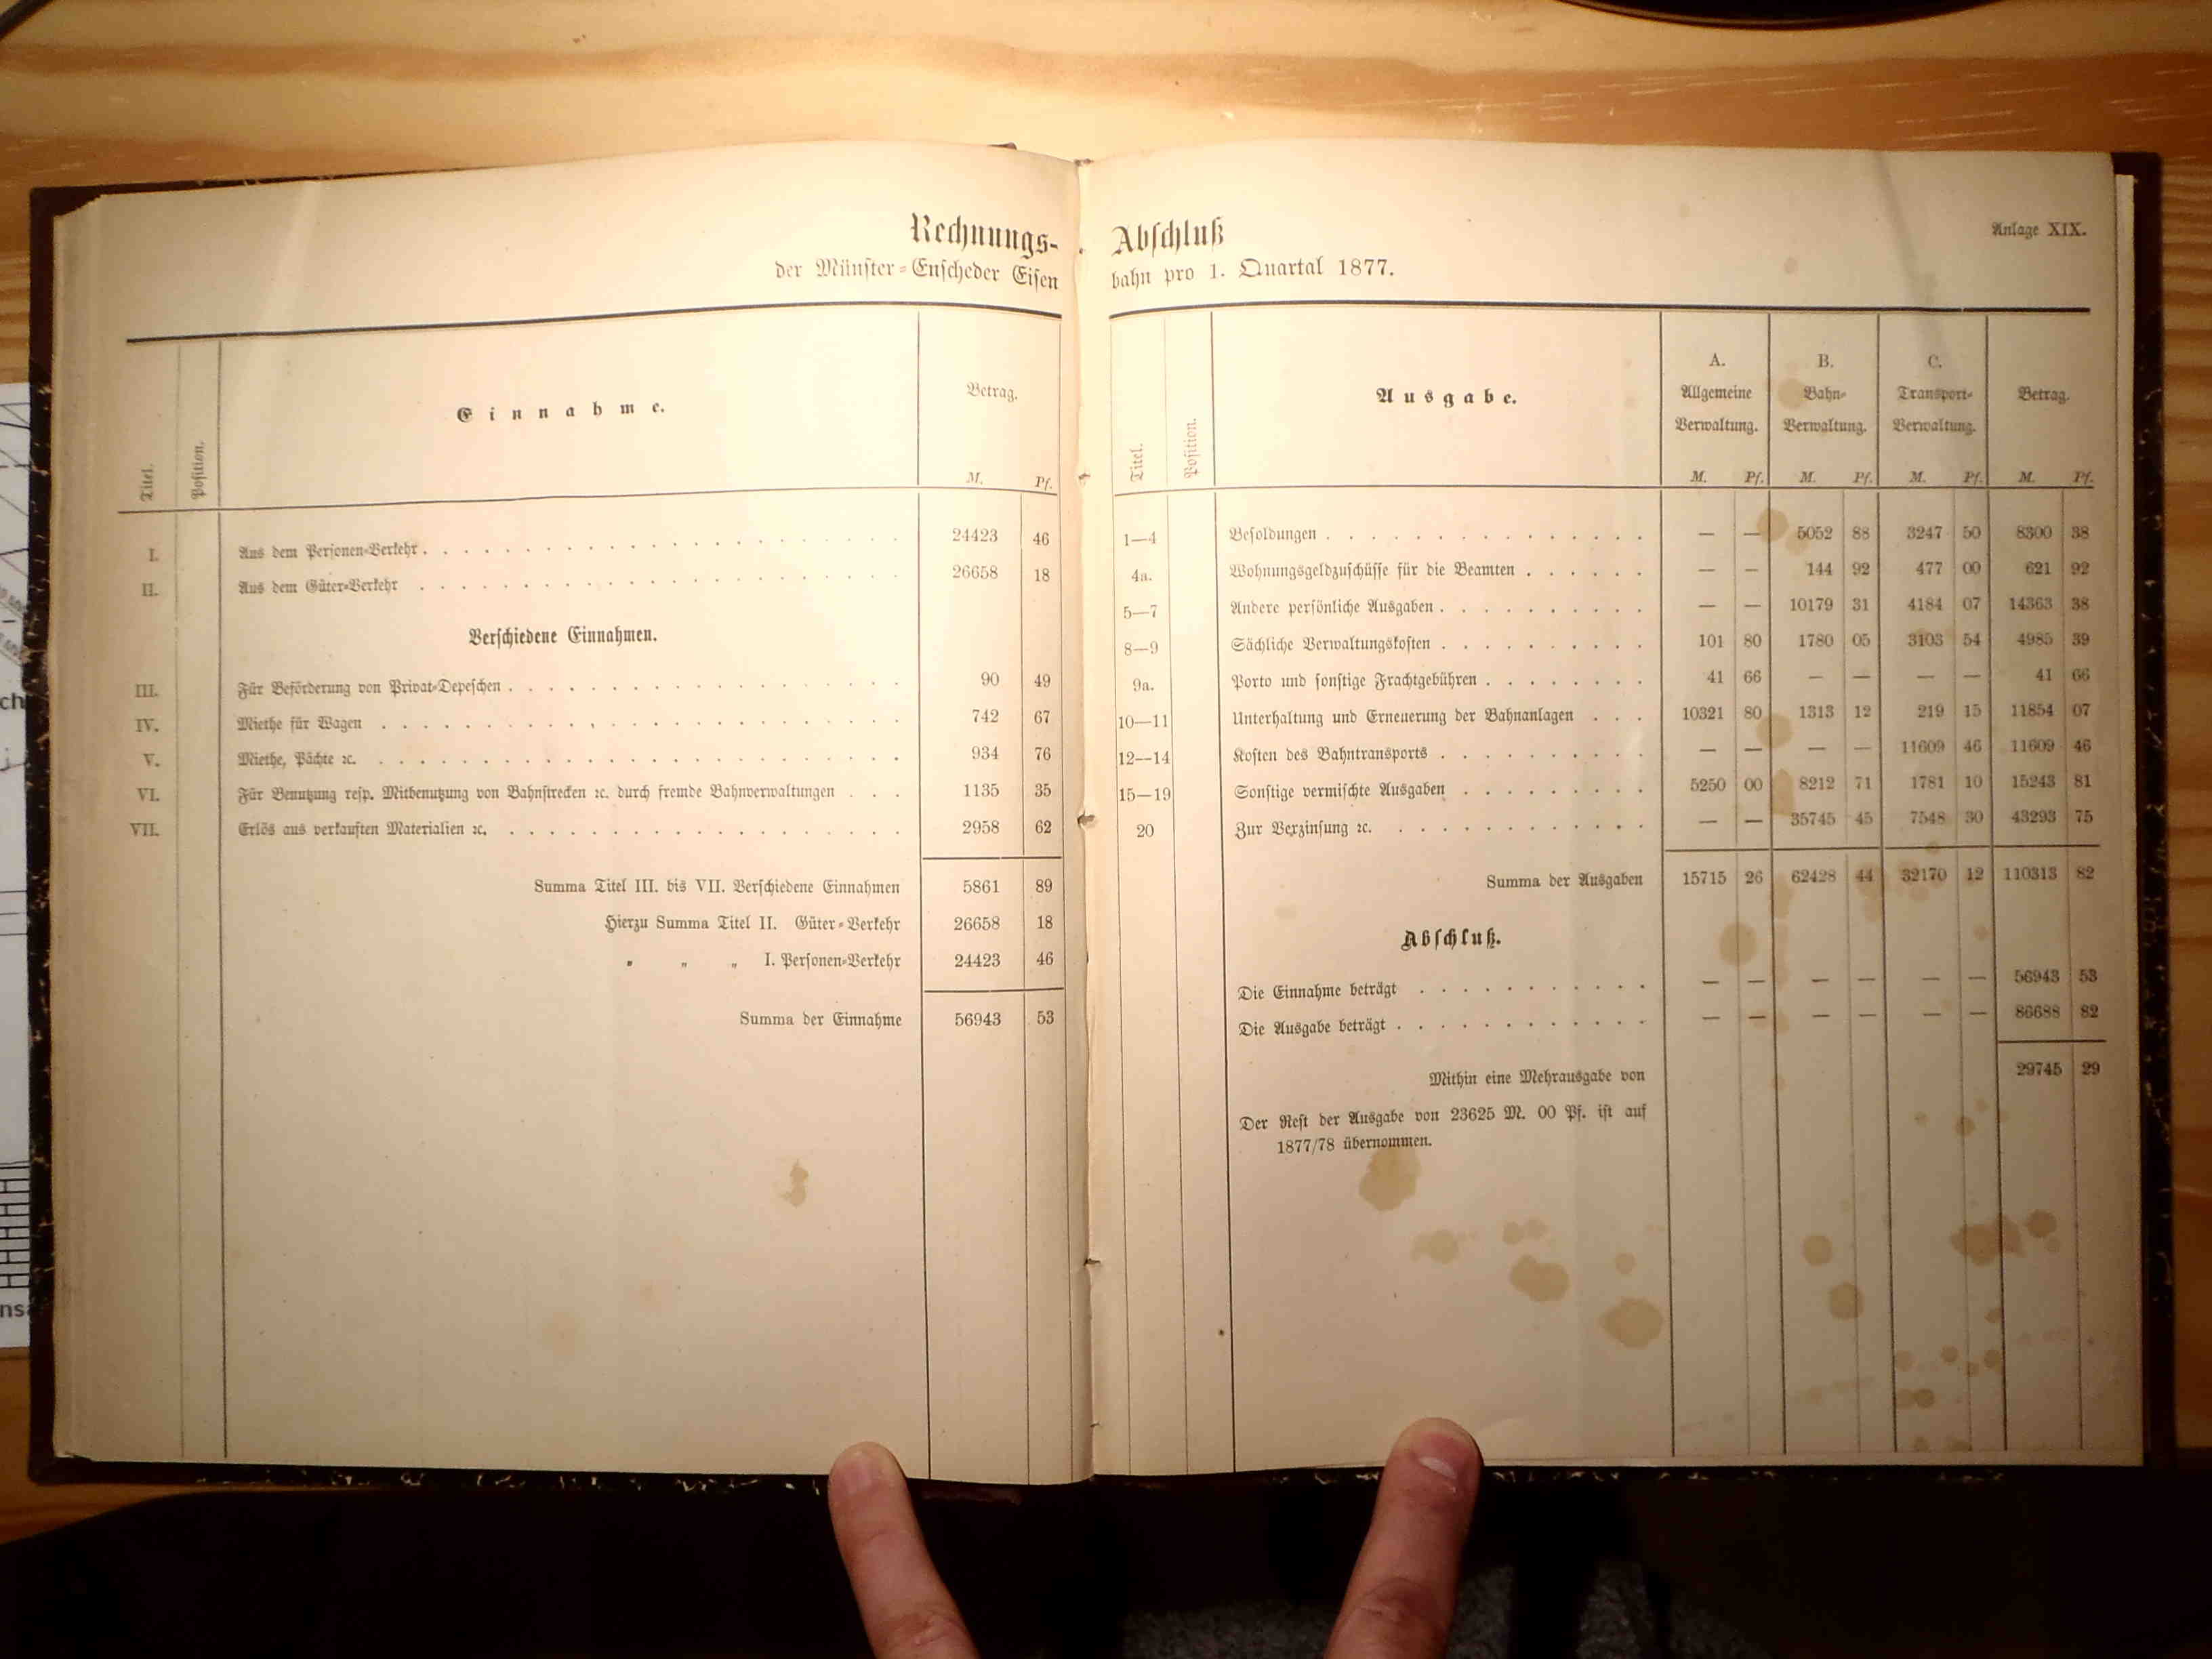 Rechnungs-
der Münster-Enscheder Eisen
Titel.
Position.
Einnahme.
Betrag.
M. Pf.
I. Aus dem Personen-Verkehr 24423 46
II. Aus dem Güter-Verkehr 26658 18
Verschiedene Einnahmen.
III. Für Beförderung von Privat-Depeschen 90 49
IV. Miethe für Wagen 742 67
V. Miethe, Pächte ꝛc. 934 76
VI. Für Benutzung resp. Mitbenutzung von Bahnstrecken ꝛc. durch fremde Bahnverwaltungen 1135 35
VII. Erlös aus verkauften Materialien ꝛc. 2958 62
Summa Titel III. bis VII. Verschiedene Einnahmen 5861 89
Hierzu Summa Titel II. Güter-Verkehr 26658 18
„ „ „ I. Personen-Verkehr 24423 46
Summa der Einnahme 56943 53
Abschluß
Anlage XIX.
bahn pro 1. Quartal 1877.
Titel.
Position.
Ausgabe.
A. Allgemeine Verwaltung.
B. Bahn-Verwaltung.
C. Transport-Verwaltung.
Betrag.
M. Pf. M. Pf. M. Pf. M. Pf.
1—4 Besoldungen — — 5052 88 3247 50 8300 38
4a. Wohnungsgeldzuschüsse für die Beamten — — 144 92 477 00 621 92
5—7 Andere persönliche Ausgaben — — 10179 31 4184 07 14363 38
8—9 Sächliche Verwaltungskosten 101 80 1780 05 3103 54 4985 39
9a. Porto und sonstige Frachtgebühren 41 66 — — — — 41 66
10—11 Unterhaltung und Erneuerung der Bahnanlagen 10321 80 1313 12 219 15 11854 07
12—14 Kosten des Bahntransports — — — — 11609 46 11609 46
15—19 Sonstige vermischte Ausgaben 5250 00 8212 71 1781 10 15243 81
20 Zur Verzinsung ꝛc. — — 35745 45 7548 30 43293 75
Summa der Ausgaben 15715 26 62428 44 32170 12 110313 82
Abschluß.
Die Einnahme beträgt — — — — — — 56943 53
Die Ausgabe beträgt — — — — — — 86688 82
Mithin eine Mehrausgabe von 29745 29
Der Rest der Ausgabe von 23625 M. 00 Pf. ist auf
1877/78 übernommen.